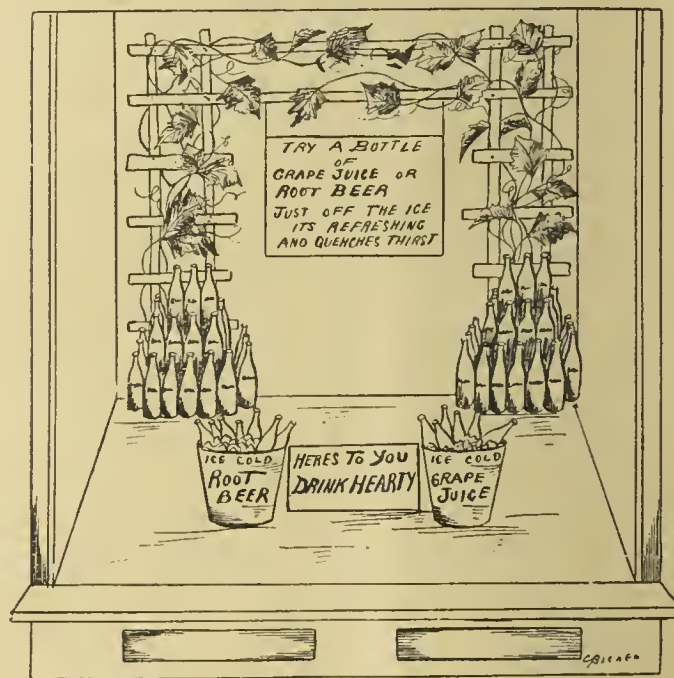 TRY A BOTTLE
OF
GRAPE JUICE OR
ROOT BEER
JUST OFF THE ICE
ITS REFRESHING
AND QUENCHES THIRST
ICE COLD
ROOT
BEER
HERES TO YOU
DRINK HEARTY
ICE COLD
GRAPE
JUICE